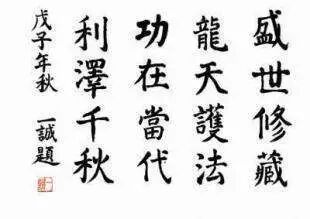 盛世修藏
龍天護法
功在當代
利澤千秋
戊子年秋
一誠題